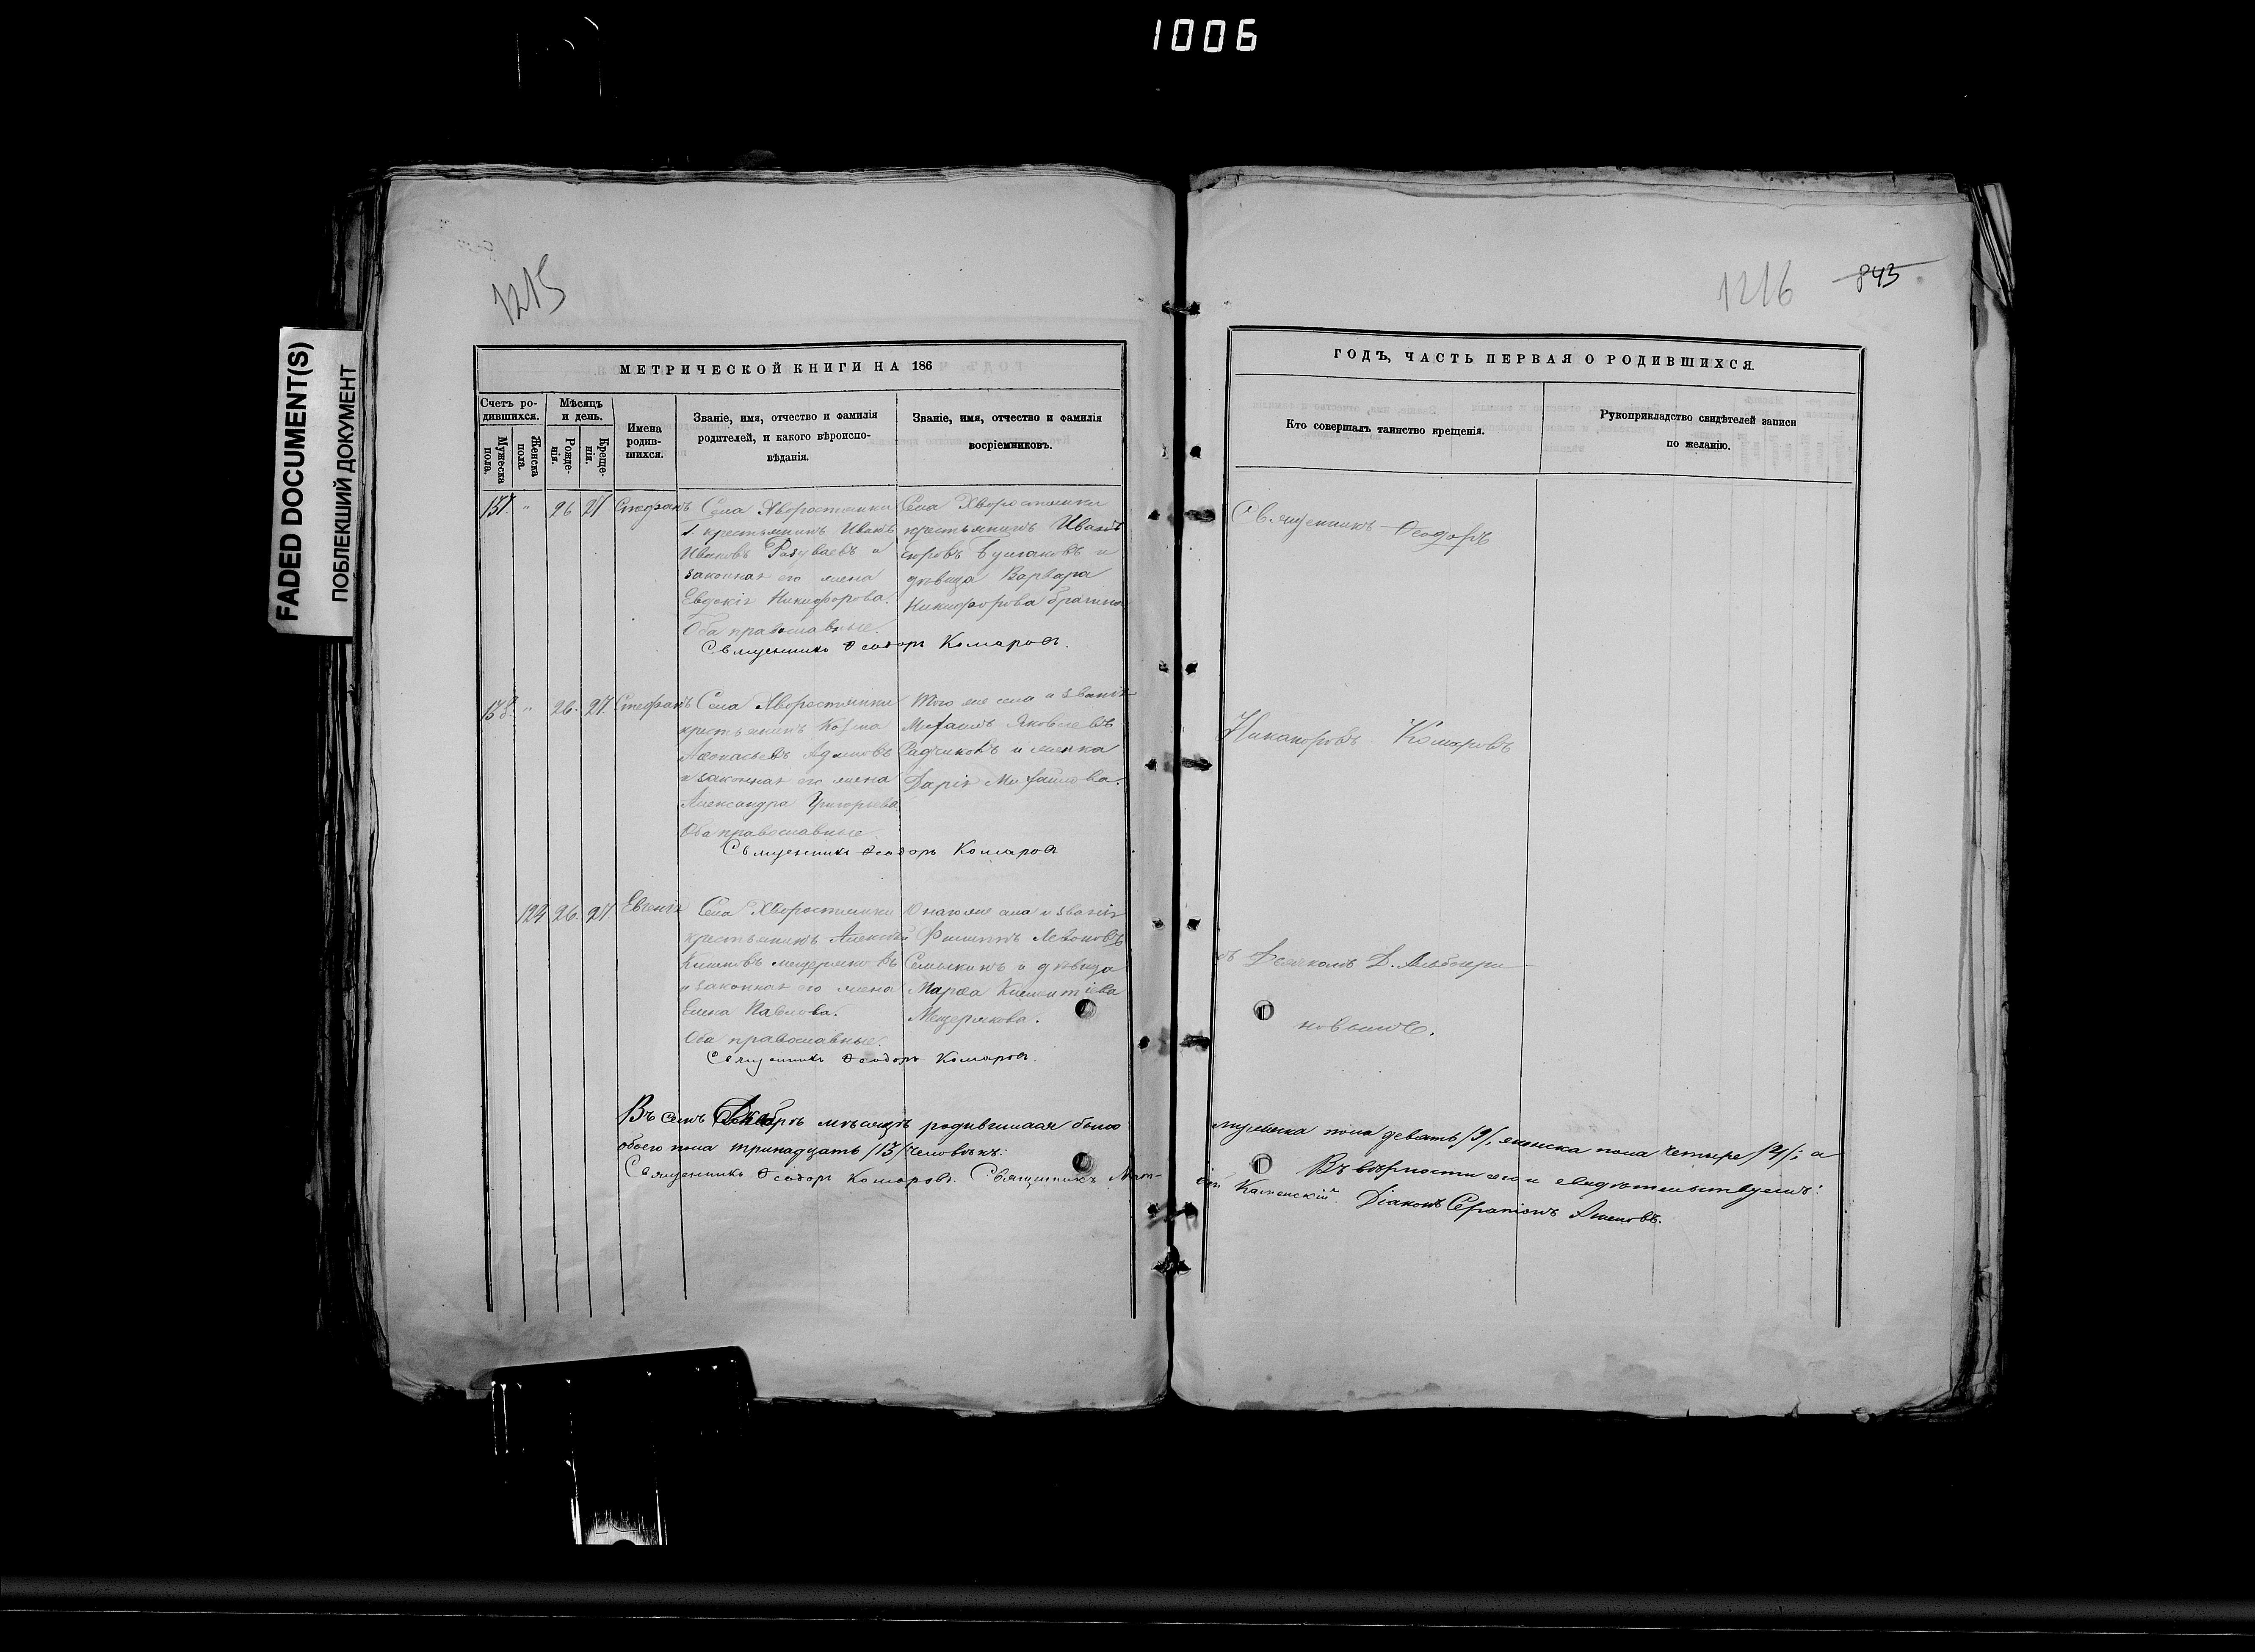 1006
FADED DOCUMENT(S)
ПОБЛЕКШИЙ ДОКУМЕНТ
1215
МЕТРИЧЕСКОЙ КНИГИ НА 186
Счетъ ро-
дившихся.
Мужеска
пола.
Женска
пола.
Мѣсяцъ
и день.
Рожде-
нія.
Креще-
нія.
Имена
родив-
шихся.
Званіе, имя, отчество и фамилія
родителей, и какого вѣроиспо-
вѣданія.
Званіе, имя, отчество и фамилія
воспріемниковъ.
137. " 26 27 Стефанъ
Села Хворостянки
крестьянинъ Иванъ
Ивановъ Разуваевъ и
законная его жена
Евдокія Никифорова.
Оба православные.
Села Хворостянки
крестьянинъ Иванъ
Булгаковъ и
дѣвица Варвара
Никифорова
Священникъ Ѳеодоръ Комаровъ.
138. " 26. 27. Стефанъ
Села Хворостянки
крестьянинъ Козма
Аѳонасьевъ
и законная его жена
Александра Григорьева
Оба православные.
Того же села и званія
Михаилъ Яковлевъ
и женка
Дарія Михайлова.
Священникъ Ѳеодоръ Комаровъ
124 26. 27 Евгенія
Села Хворостянки
крестьянинъ Алексѣй
Мещеряковъ
и законная его жена
Елена Павлова.
Оба православные.
Онаго же села и званія
Филиппъ Левоновъ
Семыкинъ и дѣвица
Марѳа Климентіева
Мещерякова.
Священникъ Ѳеодоръ Комаровъ.
Въ семъ Декабрѣ мѣсяцѣ родившихся было
обоего пола тринадцать /13/ человѣкъ.
Священникъ Ѳеодоръ Комаровъ. Священникъ
1216 843
ГОДЪ, ЧАСТЬ ПЕРВАЯ О РОДИВШИХСЯ.
Кто совершалъ таинство крещенія.
Рукоприкладство свидѣтелей записи
по желанію.
Священникъ Ѳеодоръ
Никаноровъ Комаровъ
съ Дьячкомъ Д.
новымъ.
мужеска пола девять /9/, женска пола четыре /4/; а
Въ вѣрности сего и свидѣтельствуемъ:
Каменскій. Діаконъ Серапіонъ